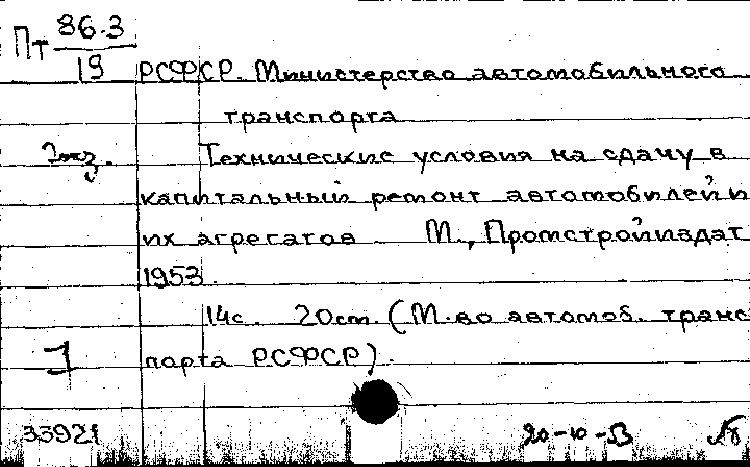 Пт 86.3
19
РСФСР. Министерство автомобильного
транспорта
2 экз.
Технические условия на сдачу в
капитальный ремонт автомобилей и
их агрегатов М., Промстройиздат
1953
14с. 20см. (М-во автомоб. транс
порта РСФСР).
33921
20-10-53